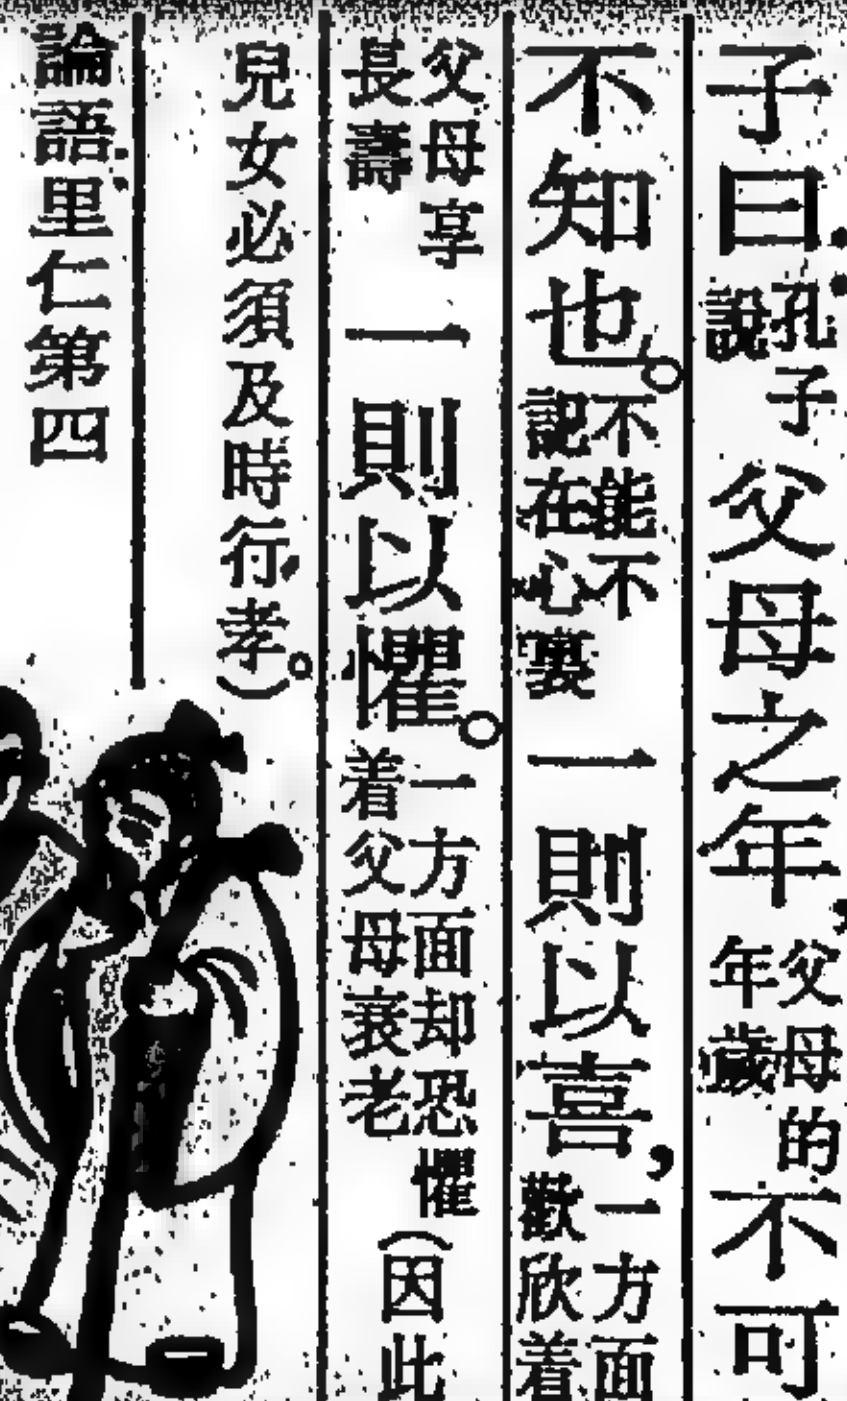 子曰：孔子說父母之年，父母的年歲不可
不知也。不能不記在心裏一則以喜，一方面歡欣着
父母享長壽一則以懼。一方面却恐懼着父母衰老（因此
兒女必須及時行孝。）
論語里仁第四